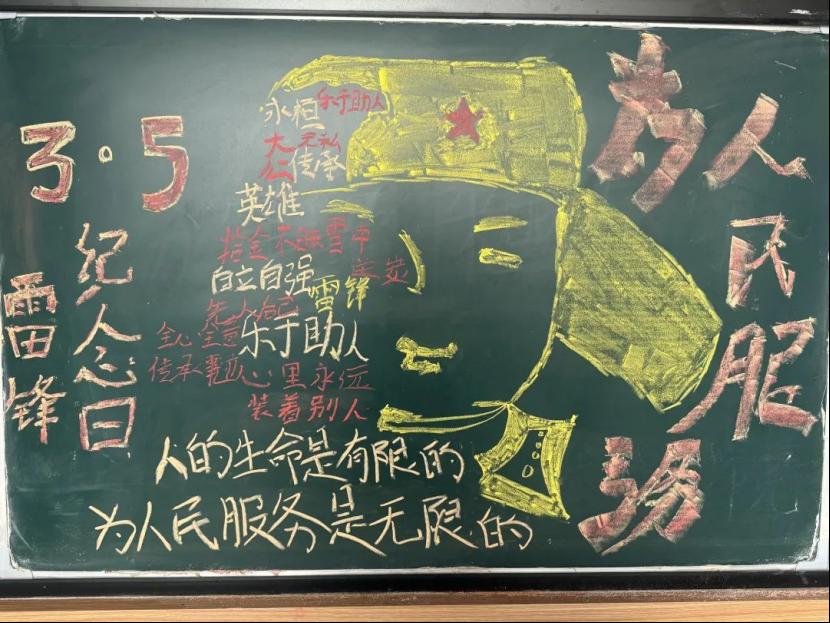 3·5
雷锋
纪念日
为人民服务
永恒
乐于助人
大公无私
传承
英雄
拾金不昧 雪中送炭
自立自强
雷锋
先人后己
全心全意
乐于助人
传承
心里永远
装着别人
人的生命是有限的
为人民服务是无限的